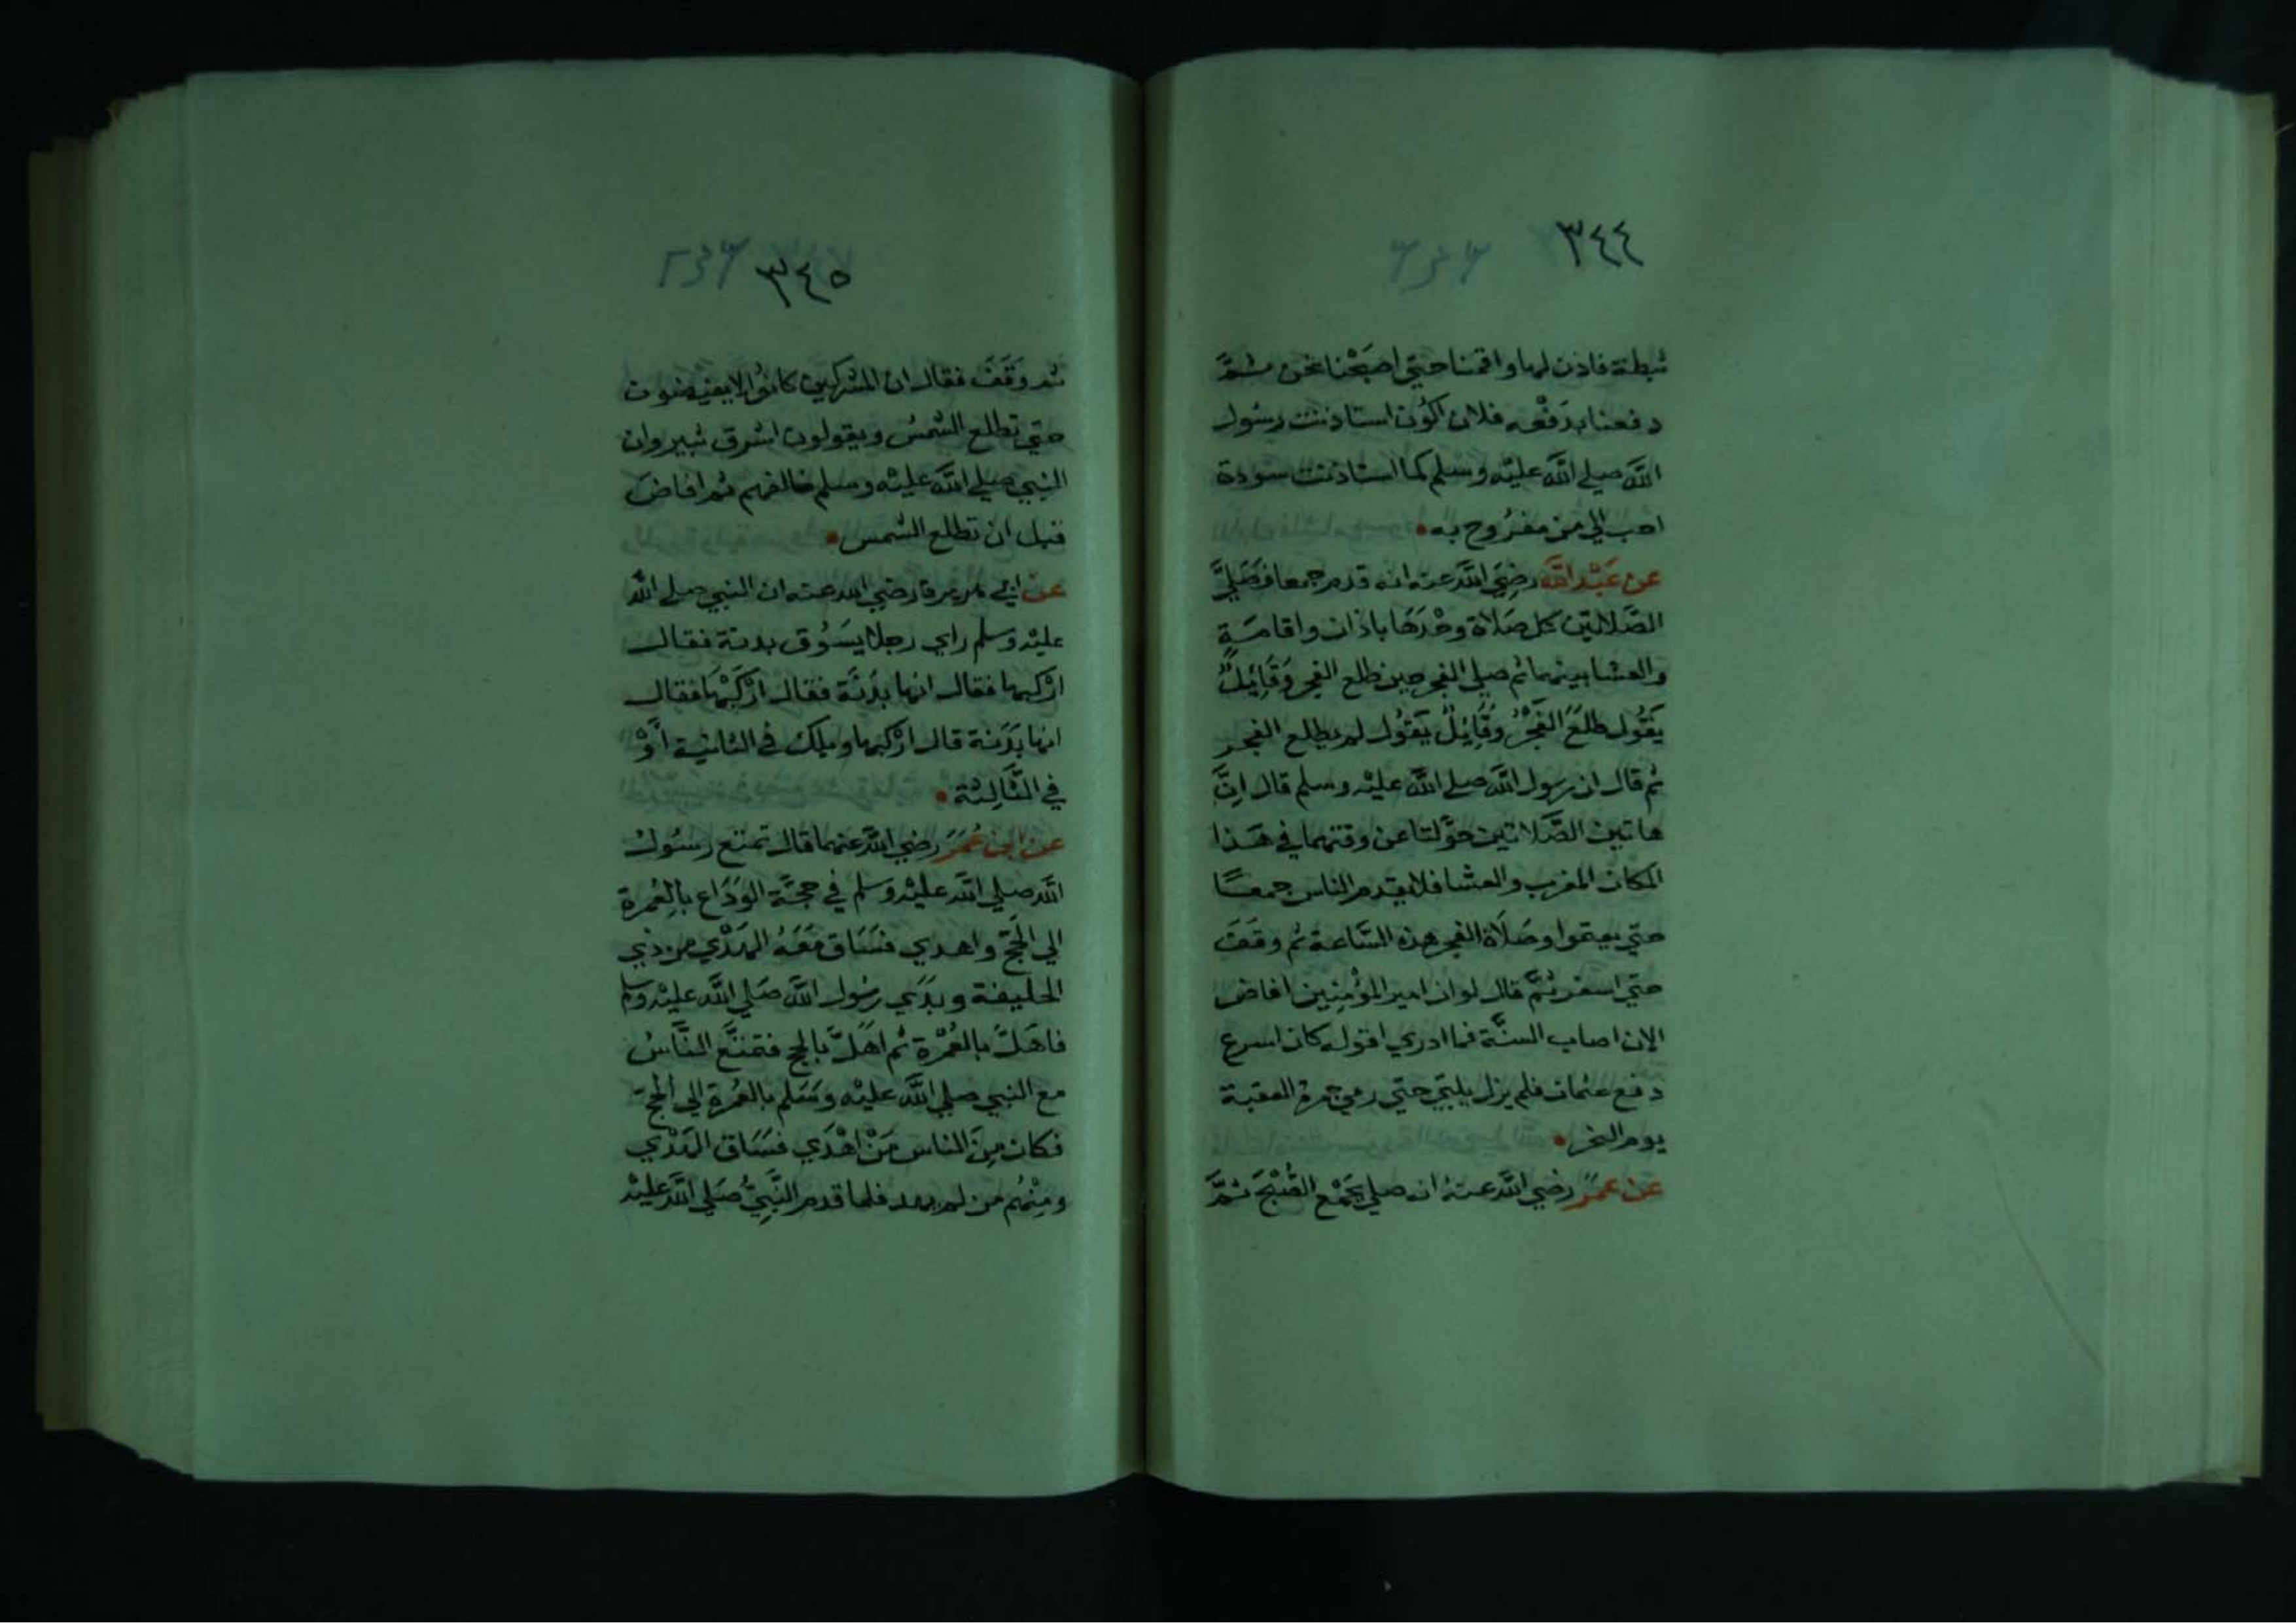 ٣٤٤
ثبطة فاذن لها واقمنا حتي اصبَحْنا نحن ثمَّ
دفعنا بدَفْعِه فلان اكُون استاذنت رسُول
اللَّه صلي اللَّه عليْه وسلم كما استاذنت سودة
احب الي من مفرُوح به
عن عَبْد اللَّه رضِيَ اللَّه عنه انه قدم جمعا فَصَلَّي
الصَّلاتيْن كل صَلاة وحْدَهَا باذان واقامَةٍ
والعشا بينهما ثم صلي الفجر حين طلع الفجر وَقَائِلٌ
يَقُول طلَعَ الفَجْرُ وقَائِلٌ يَقُول لم يطلع الفجر
ثم قال ان رسول اللَّه صلي اللَّه عليْه وسلم قال اِنَّ
هاتين الصَّلاتين حوَّلتا عن وقتهما في هَذا
المكان المغرب والعشا فلا يقدم الناس جمعًا
حتي يعتموا وصَلَاة الفجر هذه السَّاعة ثم وقفَ
حتي اسفر ثمَّ قال لو ان امير المؤمِنِين افاض
الان اصاب السنَّة فما ادري اقوله كان اسرع
دفع عثمان فلم يزل يلبّي حتي رمي جمرة العقبة
يوم النحر
عن عمَر رضي اللَّه عنهُ انه صلي بجَمْع الصُّبْحَ ثمَّ
٣٤٥
ثم وَقَفَ فقال ان المشركين كانوُا لا يفيضون
حتي تطلع الشمسُ ويقولون اشرق ثبير وان
النبي صلي اللَّه عليْه وسلم خالفهم ثم افاضَ
قبل ان تطلع الشمس
عن ابي هريرة رضي الله عنه ان النبي صلي اللَّه
عليْه وسلم راي رجلا يسَوُق بدنة فقال
ارْكبها فقال انها بدَنَة فقال ارْكَبْهَا فقال
انها بَدَنة قال ارْكبها ويلك في الثانية أَوْ
في الثَّالِثة
عن ابن عُمَرَ رضِي اللَّه عنهما قال تمتع رسُولُ
اللَّه صلي اللَّه عليْه وسلم في حجَّة الوَدَاع بالعُمرة
الي الحَجّ واهدي فسَاق مَعَهُ الهَدْي من ذي
الحليفة وبدَي رسُول اللَّه صَلي اللَّه عليْه وسلم
فاهَلَّ بالعُمْرة ثم اهَلَّ بالحج فتمتَّع النَّاسُ
مع النبي صلي اللَّه عليْه وسَلم بالعُمرة الي الحجّ
فكان مِنَ الناس مَنْ اهْدَي فسَاق الهَدْي
ومِنْهُم من لم يهد فلما قدم النَّبِيُّ صَلي اللَّه عليْه